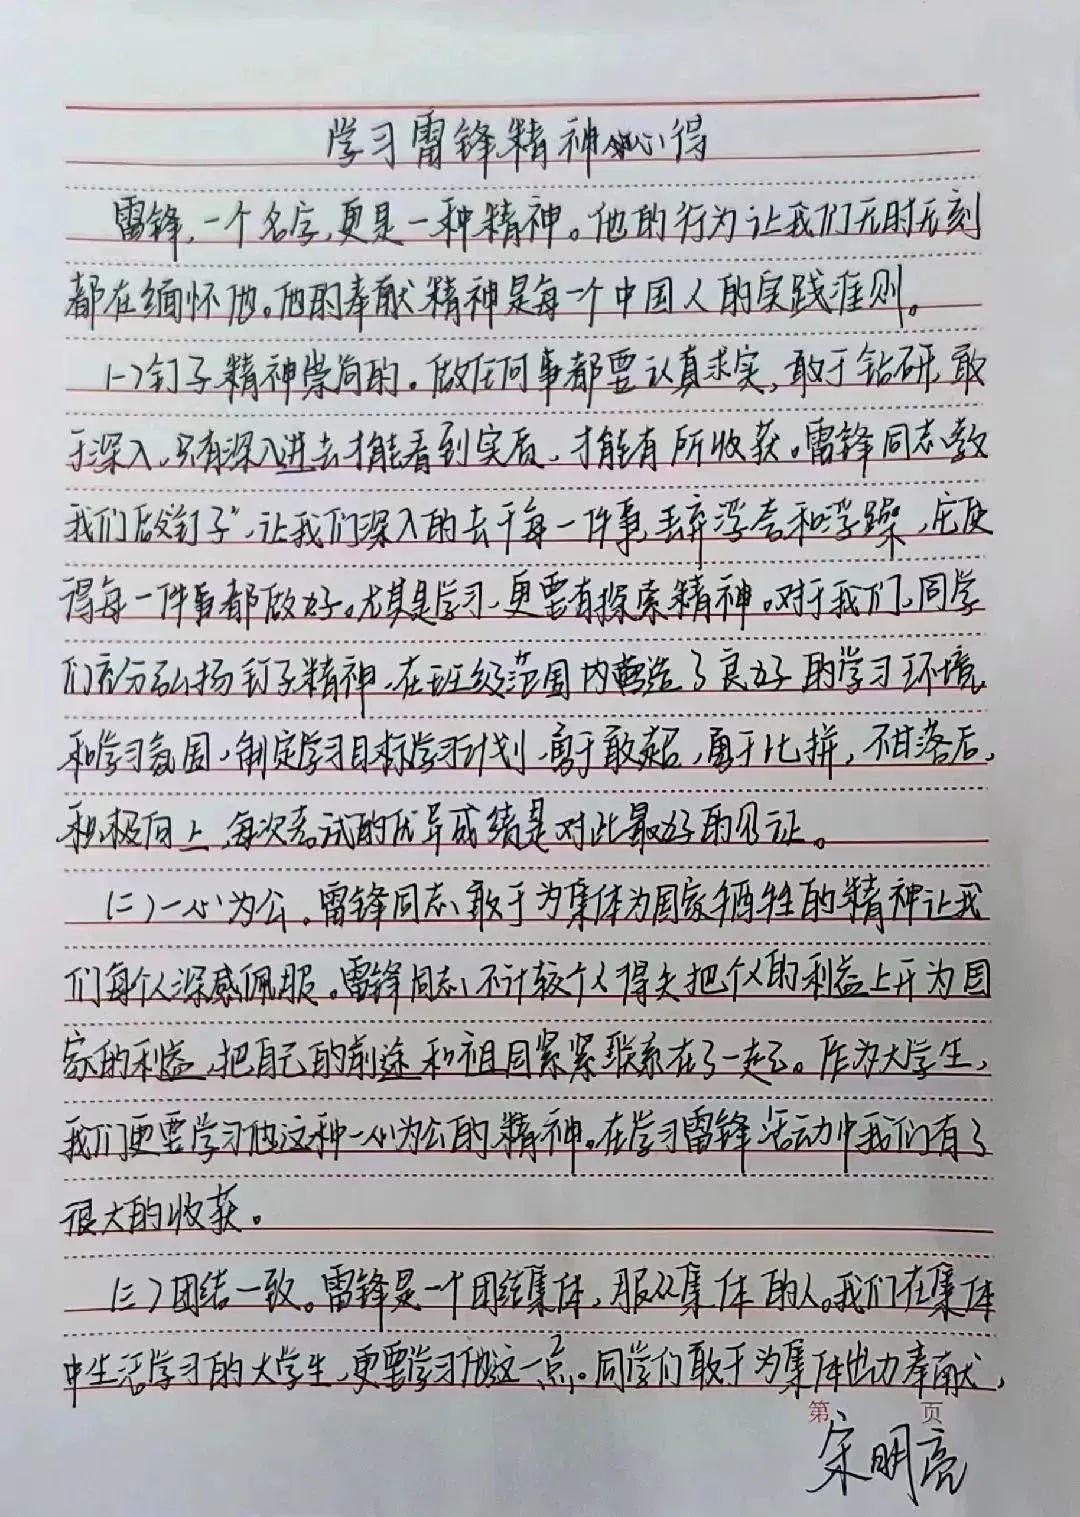 学习雷锋精神心得
雷锋,一个名字,更是一种精神。他的行为让我们无时无刻
都在缅怀他。他的奉献精神是每一个中国人的实践准则。
(一)钉子精神崇尚的。做任何事都要认真求实,敢于钻研,敢
于深入,只有深入进去才能看到实质,才能有所收获。雷锋同志教
我们做“钉子”,让我们深入的去干每一件事,丢弃浮夸和浮躁,它使
得每一件事都做好。尤其是学习,更要有探索精神。对于我们,同学
们充分弘扬钉子精神,在班级范围内营造了良好的学习环境
和学习氛围,制定学习目标学习计划,勇于敢超,勇于比拼,不甘落后,
积极向上,每次考试的优异成绩是对此最好的见证。
(二)一心为公。雷锋同志敢于为集体为国家牺牲的精神让我
们每个人深感佩服。雷锋同志不计较个人得失把个人的利益上升为国
家的利益,把自己的前途和祖国紧紧联系在了一起。作为大学生,
我们更要学习他这种一心为公的精神。在学习雷锋活动中我们有了
很大的收获。
(三)团结一致。雷锋是一个团结集体,服从集体的人。我们在集体
中生活学习的大学生,更要学习他这一点。同学们敢于为集体出力奉献,
第 页
宋明亮